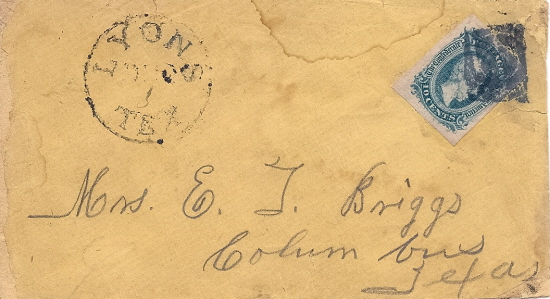 LYONS
TEX
The Confederate
10 CENTS
Mrs. E. T. Briggs
Columbus
Texas